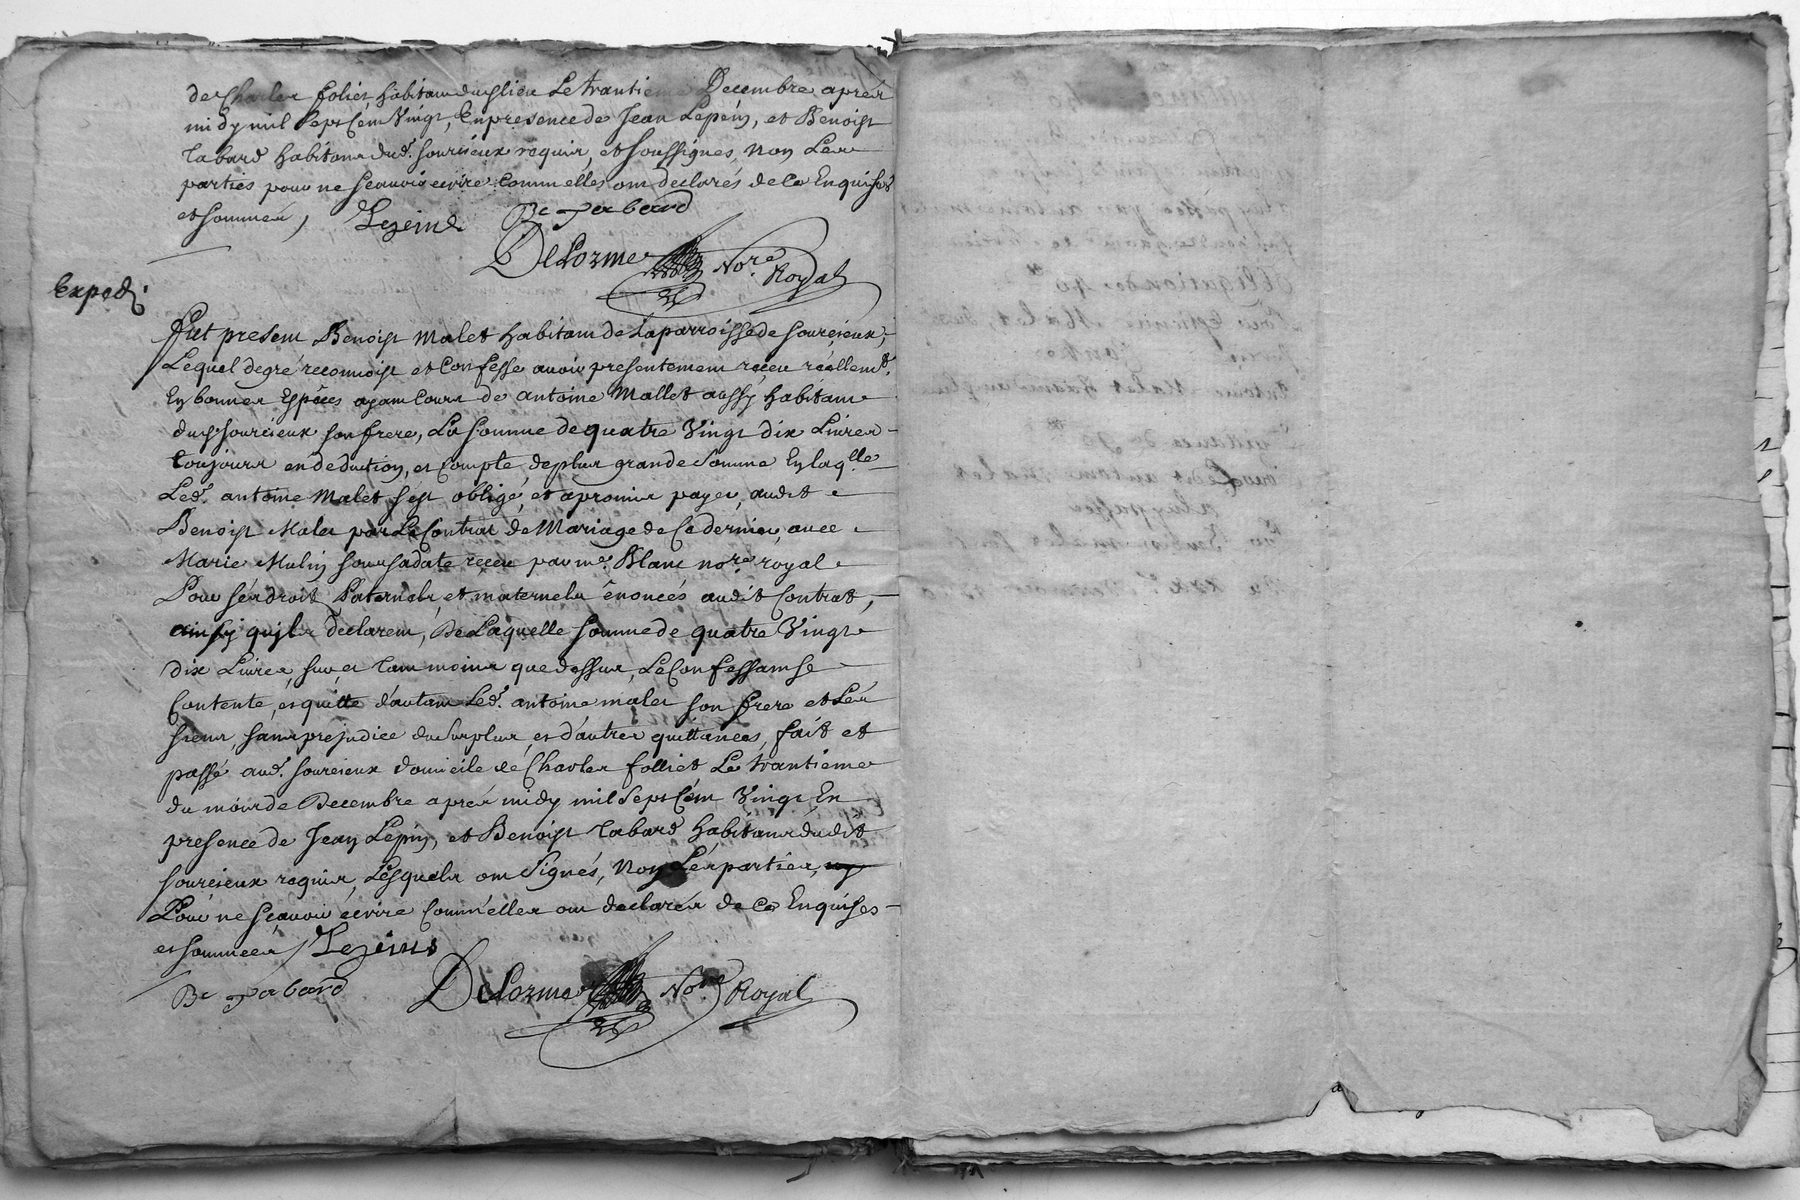 de Charles foliet habitant dud lieu Le trantieme Decembre apres
midy mil Sept Cent Vingt, En presence de Jean Lepin, et Benoist
Tabard habitans dud. sourcieux requis, et soussignes, Non Les
parties pour ne scavoir ecrire Comm'elles ont declarés de Ce Enquises
et sommeés, Lepin
Bt Tabard
Delorme Nore Royal
Exped.
Fut present Benoist Malet habitant de La parroisse de sourcieux,
Lequel de gré reconnoist et Confesse avoir presentement receu réellemt.
En bonnes Espéces ayant Cours de antoine Mallet aussy habitant
dud sourcieux son frere, La somme de quatre Vingt dix Livres
toujours en deduction, et Compte de plus grande Somme En laqlle
Led. antoine Malet s'est obligé, et a promis payer, audit
Benoist Malet par Le Contrat de Mariage de Ce dernier, avec
Marie Mulin sous sa date receu par me. Blanc nore royal
Pour ses droits Paternels, et maternels énoncés audit Contrat,
ainsy qu'ils declarent, De Laquelle somme de quatre Vingt
dix Livres, sur, et tant moins que dessus, Le Confessant se
Contente, et quitte d'autant Led. antoine malet son frere et Les
siens, sans prejudice du Surplus, et d'autres quittances, fait et
passé aud. sourcieux domicile de Charles folliet Le trantieme
du mois de Decembre apres midy mil Sept Cent Vingt En
presence de Jean Lepin, et Benoist Tabard habitans dudit
sourcieux requis, Lesquels ont Signés, Non Les parties,
Pour ne scavoir écrire Comm'elles ont declarés de Ce Enquises
et sommeés Lepin
Bt Tabard
Delorme Nore Royal